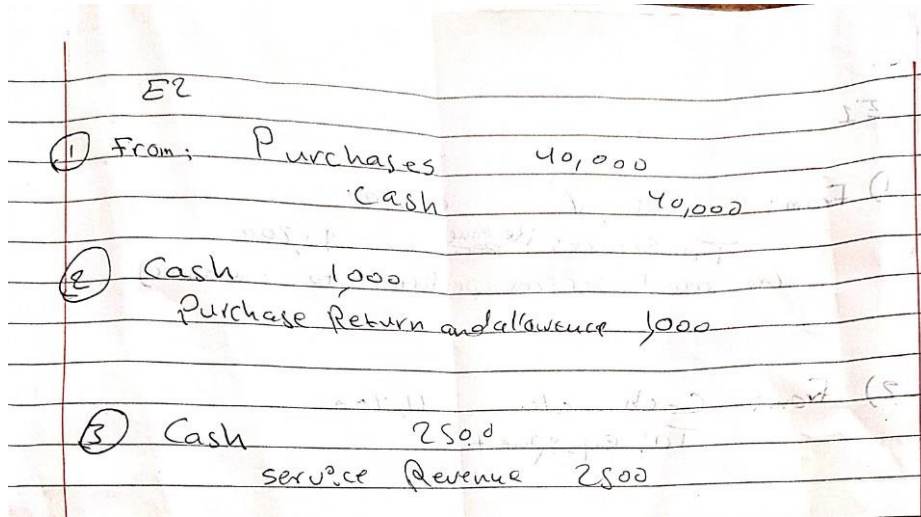 E2
① From: Purchases 40,000
Cash 40,000
② Cash 1,000
Purchase Return and allowence 1,000
③ Cash 2500
service Revenue 2500